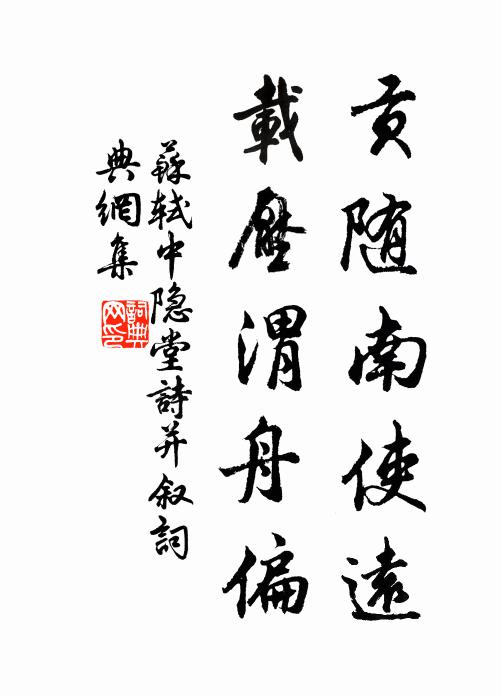 贡随南使遠
載壓渭舟偏
蘇軾中隐堂詩并叙詞
典網集
詞典
网印